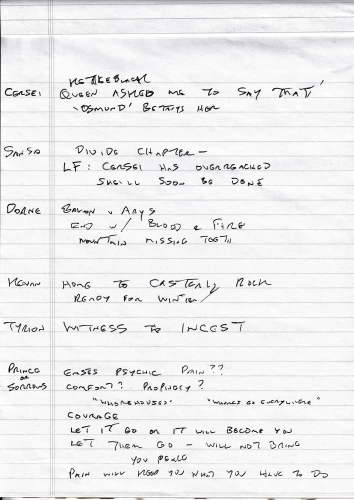 KETTLEBLACK
CERSEI QUEEN ASKED ME TO SAY THAT'
'OSMUND' BETRAYS HER
SANSA DIVIDE CHAPTER —
LF: CERSEI HAS OVERREACHED
SHE'LL SOON BE DONE
DORNE BALON v ARYS
END w/ BLOOD & FIRE
MOUNTAIN MISSING TEETH
KEVAN HOME TO CASTERLY ROCK
READY FOR WINTER
TYRION WITNESS TO INCEST
PRINCE OF SORROWS EASES PSYCHIC PAIN??
COMFORT? PROPHECY?
"WHOREHOUSES" "WHORES GO EVERYWHERE"
COURAGE
LET IT GO OR IT WILL BECOME YOU
LET THEM GO — WILL NOT BRING
YOU PEACE
PAIN WILL KEEP YOU WHAT YOU HAVE TO DO